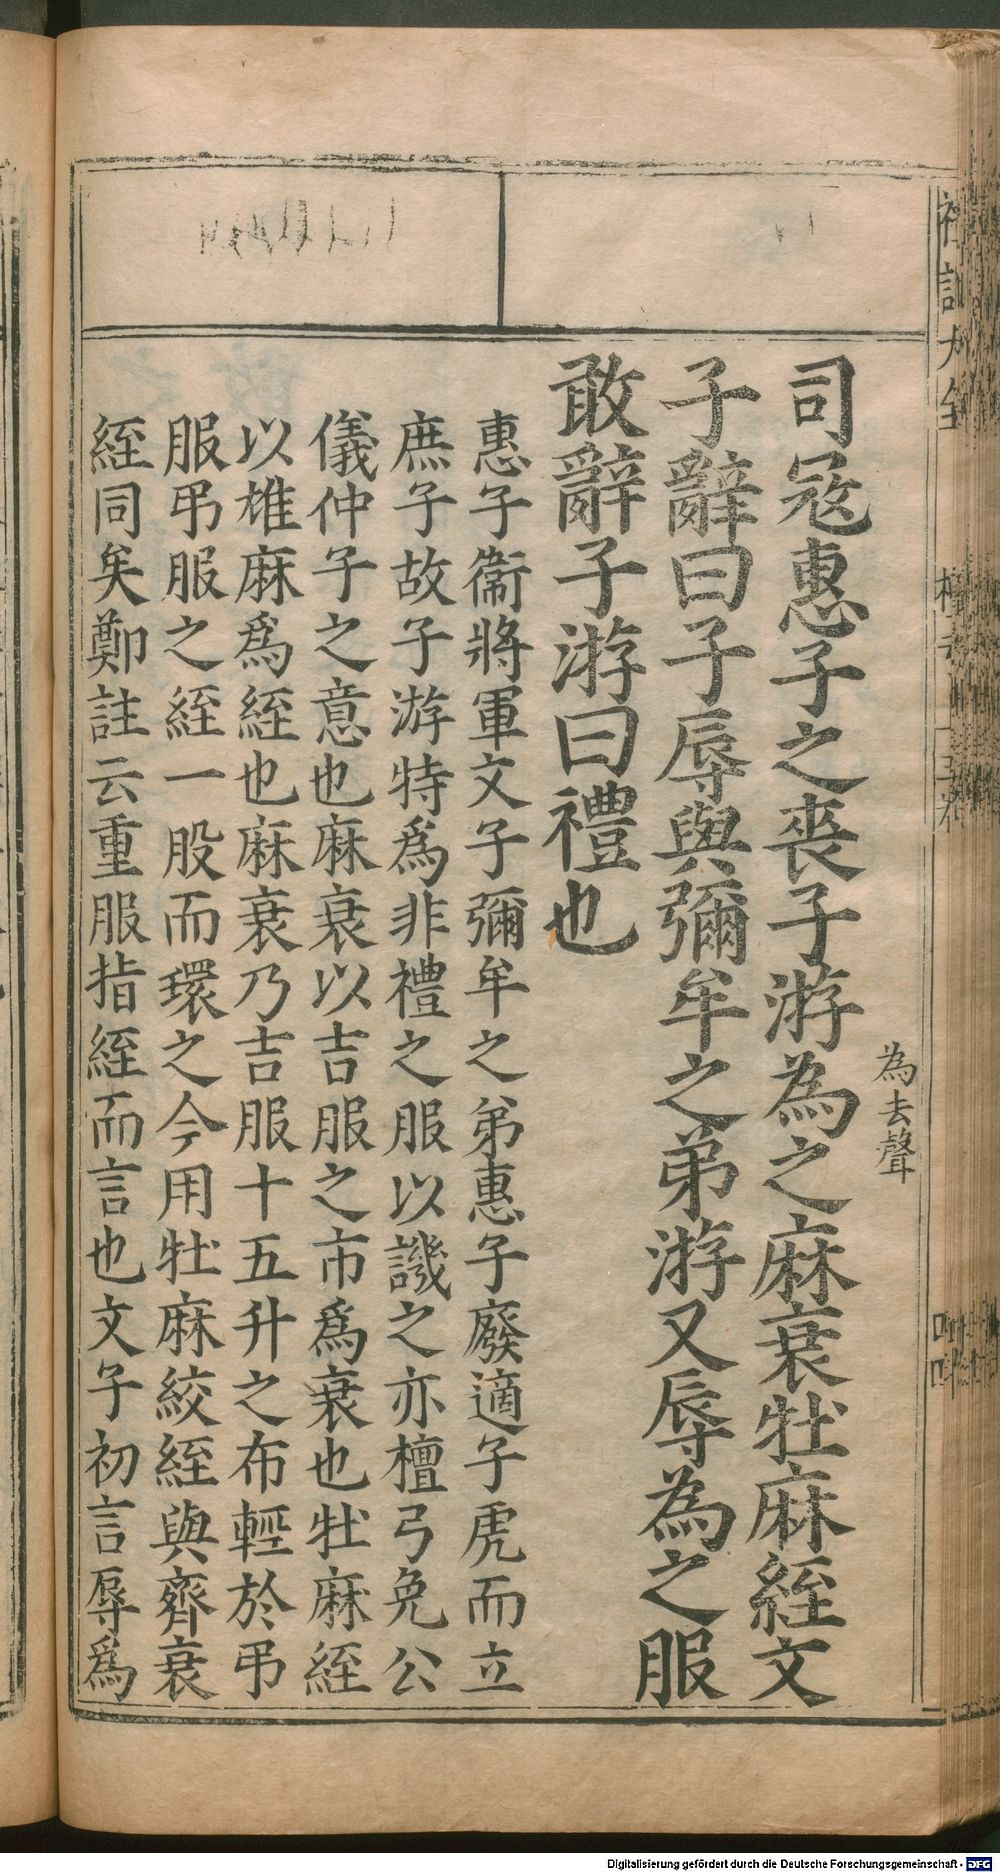 為去聲
司冦惠子之丧子游為之麻衰牡麻絰文
子辭曰子辱與彌牟之弟游又辱為之服
敢辭子游曰禮也
惠子衞將軍文子彌牟之弟惠子廢適子虎而立
庶子故子游特爲非禮之服以譏之亦檀弓免公
儀仲子之意也麻衰以吉服之市爲衰也牡麻絰
以雄麻爲絰也麻衰乃吉服十五升之布輕於弔
服弔服之絰一股而環之今用牡麻絞絰與齊衰
絰同矣鄭註云重服指絰而言也文子初言辱爲
Digitalisierung gefördert durch die Deutsche Forschungsgemeinschaft - DFG